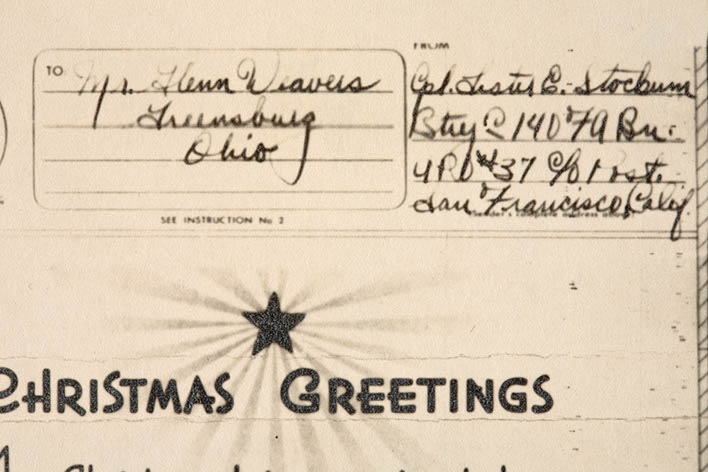 TO:
Mr. Glenn Weavers
Greensburg
Ohio
SEE INSTRUCTION No 2
FROM
Cpl. Lester E. Stockum
Btry C 140 FA Bn.
APO #37 c/o Post.
San Francisco, Calif.
Sender's complete address above
CHRISTMAS GREETINGS